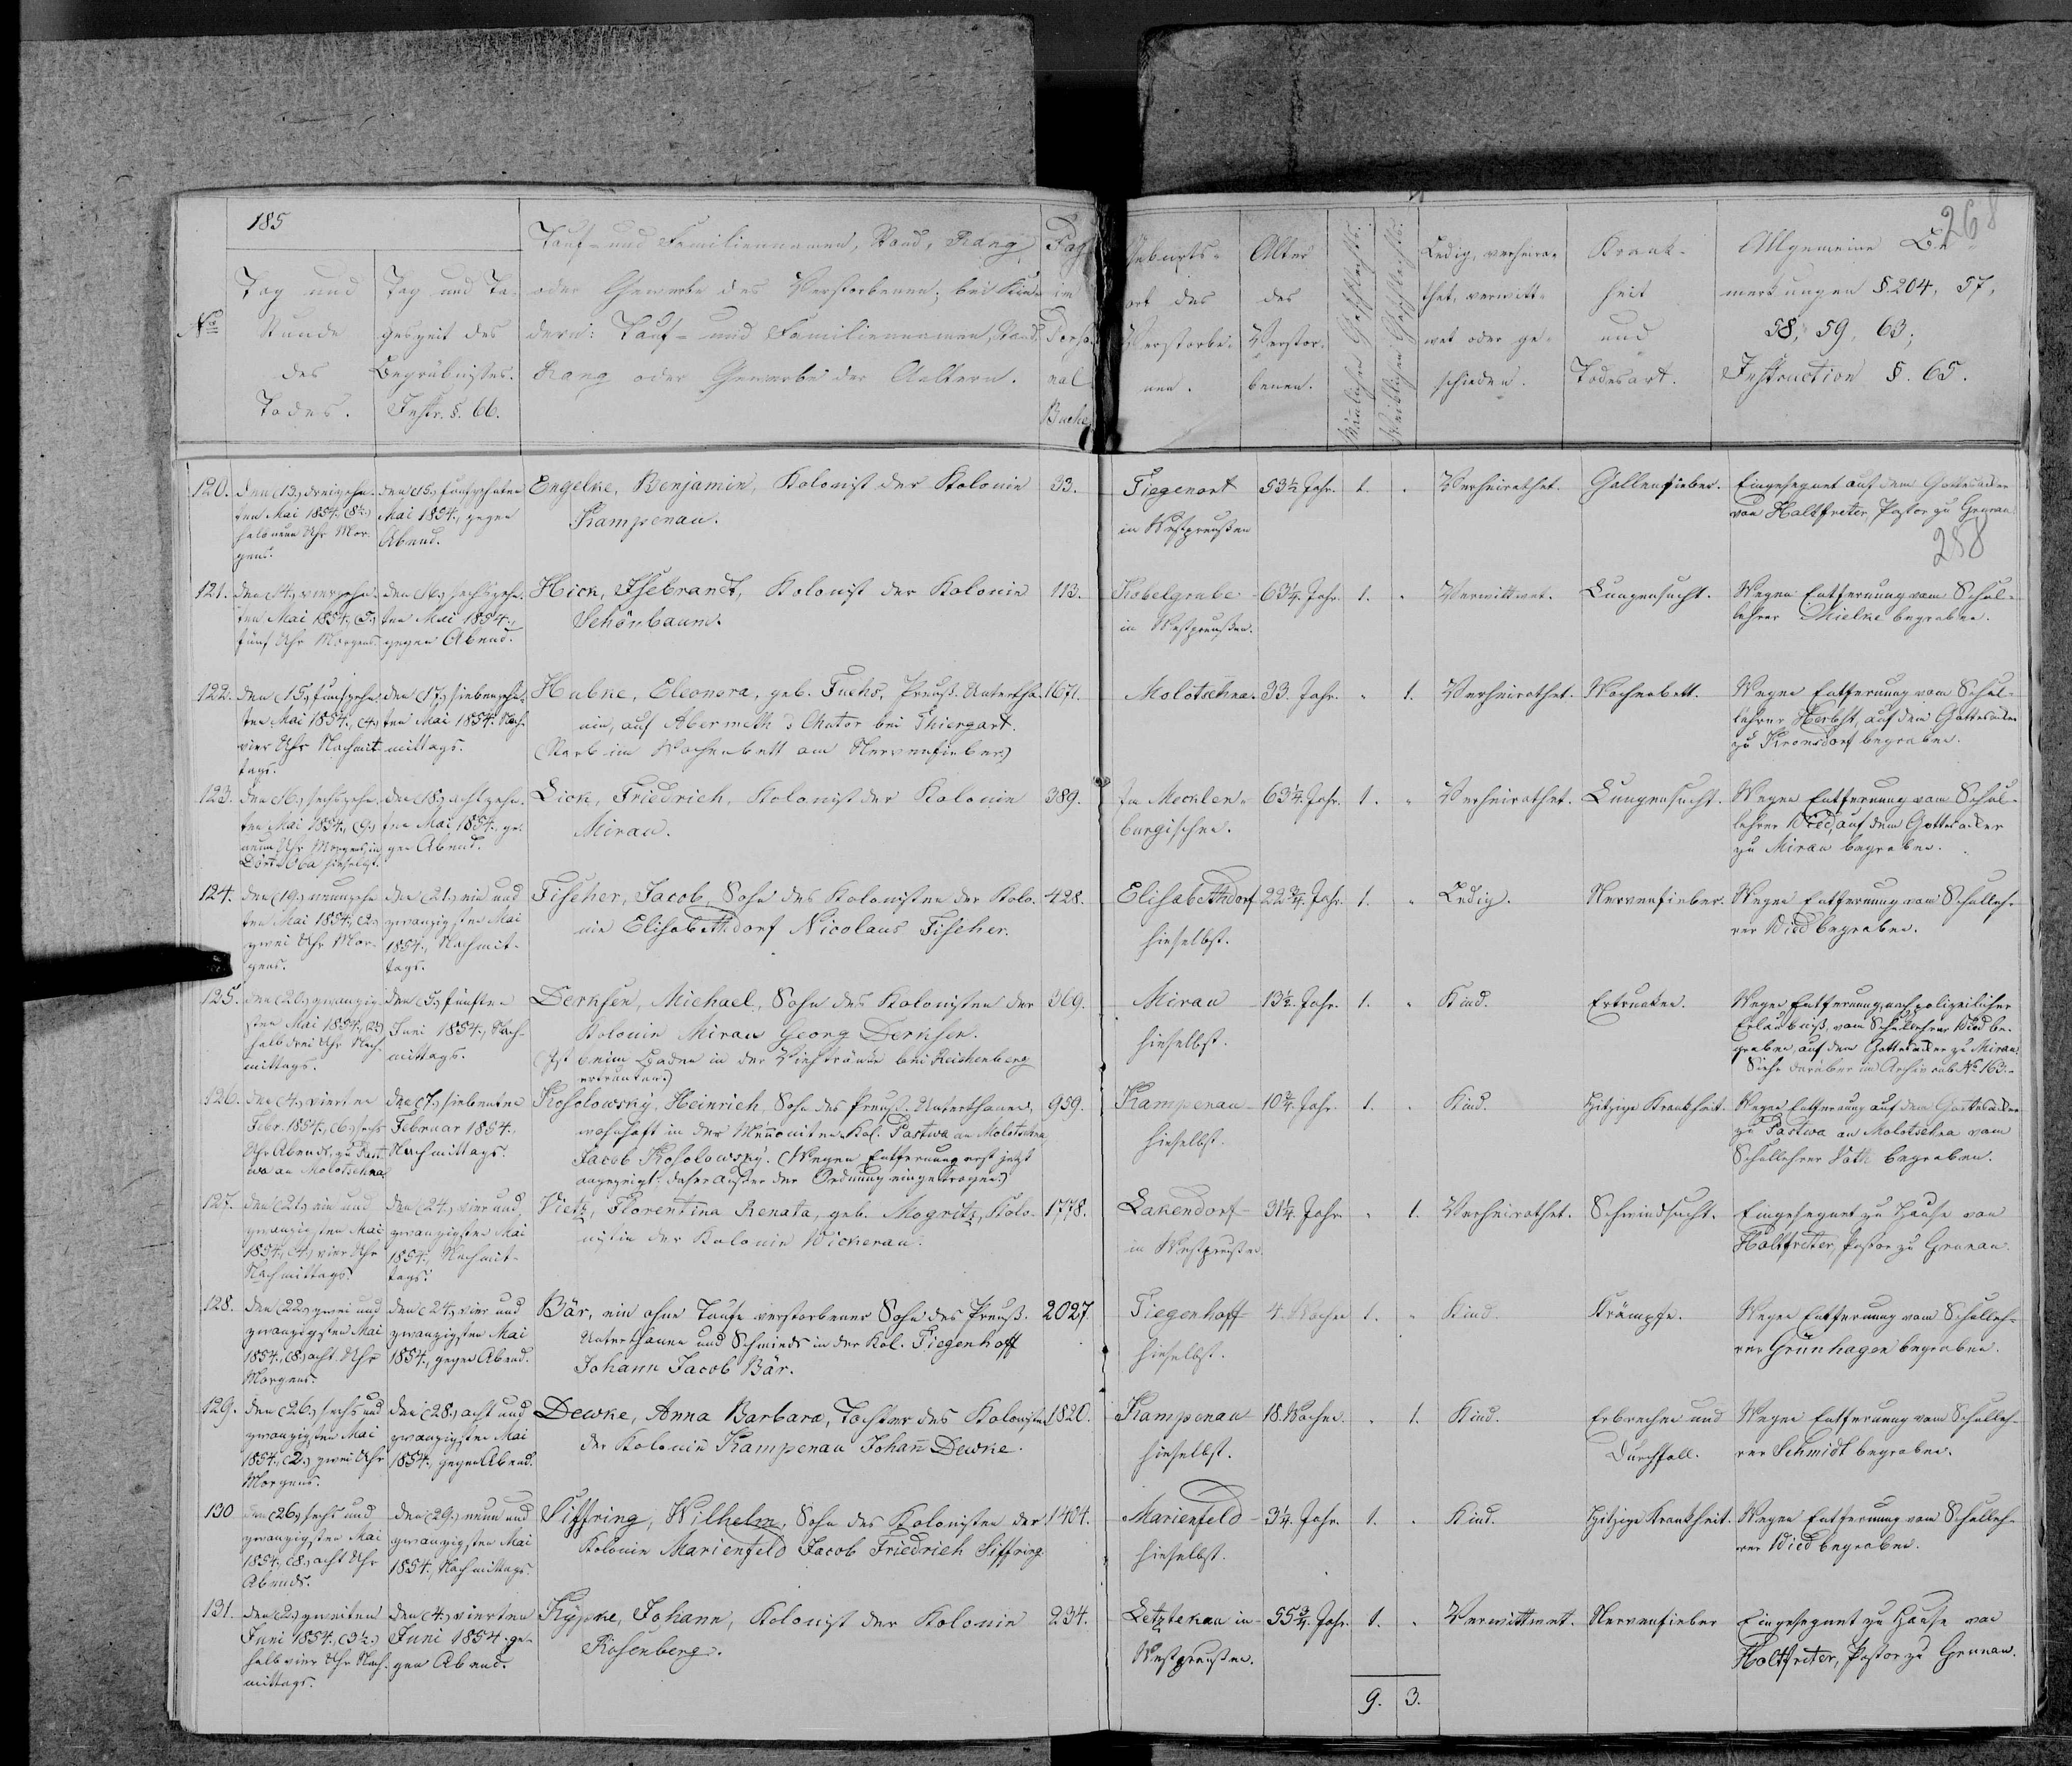 185
268
Tauf- und Familiennamen, Stand, Rang
oder Gewerbe des Verstorbenen; bei Kin-
dern: Tauf- und Familiennamen, Stand,
Rang oder Gewerbe der Aeltern.
Pag
im
Perso-
nal
Buche
No
Tag und
Stunde
des
Todes.
Tag und Ta-
geszeit des
Begräbnisses.
Instr. §. 66.
Geburts-
ort des
Verstorbe-
nen.
Alter
des
Verstor-
benen.
Männlichen Geschlechts.
Weiblichen Geschlechts.
Ledig, verheira-
thet, verwitt-
wet oder ge-
schieden.
Krank-
heit
und
Todesart.
Allgemeine Be-
merkungen §. 204, 57,
58, 59, 63;
Instruction §. 65.
120.
den (13.) dreizehn-
ten Mai 1854., (8½)
halb neun Uhr Mor-
gens.
den (15.) fünfzehnten
Mai 1854., gegen
Abend.
Engelke, Benjamin, Kolonist der Kolonie
Kampenau.
33.
Tiegenort
in Westpreußen
53½ Jahr.
1.
Verheirathet.
Gallenfieber.
Eingesegnet auf dem Gottesacker
von Holtfreter, Pastor zu Grunau.
288
121.
den (14.) vierzehn-
ten Mai 1854., (5.)
fünf Uhr Morgens.
den (16.) sechszehn-
ten Mai 1854.,
gegen Abend.
Hick, Isebrandt, Kolonist der Kolonie
Schönbaum.
113.
Kobelgrube
in Westpreußen.
63¼ Jahr.
1.
Verwittwet.
Lungensucht.
Wegen Entfernung vom Schul-
lehrer Mielke begraben.
122.
den (15.) fünfzehn-
ten Mai 1854., (4.)
vier Uhr Nachmit-
tags.
den (17.) siebenzehn-
ten Mai 1854. Nach-
mittags.
Hubke, Eleonora, geb. Fuchs, Preuß. Untertha-
nin, auf Abermeth's Chutor bei Thiergart.
(Starb im Wochenbett am Nervenfieber.)
1671.
Molotschna.
33. Jahr.
1.
Verheirathet.
Wochenbett.
Wegen Entfernung vom Schul-
lehrer Herbst, auf dem Gottesacker
zu Kronsdorf begraben.
123.
den (16.) sechszehn-
ten Mai 1854., (9.)
neun Uhr Morgens, in
hieselbst.
den (18.) achtzehn-
ten Mai 1854., ge-
gen Abend.
Lick, Friedrich, Kolonist der Kolonie
Mirau.
389.
Im Mecklen-
burgischen.
63¼. Jahr.
1.
Verheirathet.
Lungensucht.
Wegen Entfernung vom Schul-
lehrer Died, auf dem Gottesacker
zu Mirau begraben.
124.
den (19.) neunzehn-
ten Mai 1854., (2.)
zwei Uhr Mor-
gens.
den (21.) ein und
zwanzigsten Mai
1854., Nachmit-
tags.
Fischer, Jacob, Sohn des Kolonisten der Kolo-
nie Elisabethdorf Nicolaus Fischer.
428.
Elisabethdorf
hieselbst.
22¾. Jahr.
1.
Ledig.
Nervenfieber.
Wegen Entfernung vom Schulleh-
rer Died begraben.
125.
den (20.) zwanzig-
sten Mai 1854., (2½)
halb drei Uhr Nach-
mittags.
den (5.) fünften
Juni 1854., Nach-
mittags.
Derksen, Michael, Sohn des Kolonisten der
Kolonie Mirau Georg Derksen.
(Ist beim Baden in der Viehtränke bei Reichenberg
ertrunken.)
309.
Mirau
hieselbst.
13½. Jahr.
1.
Kind.
Ertrunken.
Wegen Entfernung, nach polizeilicher
Erlaubniß, vom Schullehrer Died be-
graben, auf dem Gottesacker zu Mirau.
Siehe darüber im Archiv sub No 163.
126.
den (4.) vierten
Febr. 1854., (6.) sechs
Uhr Abends, zu Past-
wa an Molotschna
den (7.) siebenten
Februar 1854.,
Nachmittags.
Kosolowsky, Heinrich, Sohn des Preuß. Unterthanen,
wohnhaft in der Mennoniten-Kol. Pastwa an Molotschna
Jacob Kosolowsky. (Wegen Entfernung erst jetzt
angezeigt, daher außer der Ordnung eingetragen.)
959.
Kampenau
hieselbst.
10¾. Jahr.
1.
Kind.
Hitzige Krankheit.
Wegen Entfernung auf dem Gottesacker
zu Pastwa an Molotschna vom
Schullehrer Voth begraben.
127.
den (21.) ein und
zwanzigsten Mai
1854., (4.) vier Uhr
Nachmittags.
den (24.) vier und
zwanzigsten Mai
1854., Nachmit-
tags.
Vietz, Florentina Renata, geb. Mogritz, Kolo-
nistin der Kolonie Wickerau.
1778.
Lakendorf
in Westpreußen.
31¼. Jahr.
1.
Verheirathet.
Schwindsucht.
Eingesegnet zu Hause von
Holtfreter, Pastor zu Grunau.
128.
den (22.) zwei und
zwanzigsten Mai
1854., (8.) acht Uhr
Morgens.
den (24.) vier und
zwanzigsten Mai
1854., gegen Abend.
Bär, ein ohne Taufe verstorbener Sohn des Preuß.
Unterthanen und Schmieds in der Kol. Tiegenhoff
Johann Jacob Bär.
2027.
Tiegenhoff
hieselbst.
4. Wochen
1.
Kind.
Krämpfe.
Wegen Entfernung vom Schulleh-
rer Grünhagen begraben.
129.
den (26.) sechs und
zwanzigsten Mai
1854., (2.) zwei Uhr
Morgens.
den (28.) acht und
zwanzigsten Mai
1854., gegen Abend.
Dewke, Anna Barbara, Tochter des Kolonisten
der Kolonie Kampenau Johann Dewke.
1820.
Kampenau
hieselbst.
18. Wochen.
1.
Kind.
Erbrechen und
Durchfall.
Wegen Entfernung vom Schulleh-
rer Schmidt begraben.
130
den (26.) sechs und
zwanzigsten Mai
1854., (8.) acht Uhr
Abends.
den (29.) neun und
zwanzigsten Mai
1854., Nachmittags.
Siffring, Wilhelm, Sohn des Kolonisten der
Kolonie Marienfeld Jacob Friedrich Siffring.
1404.
Marienfeld
hieselbst.
3¼. Jahr.
1.
Kind.
Hitzige Krankheit.
Wegen Entfernung vom Schulleh-
rer Died begraben.
131.
den (2.) zweiten
Juni 1854., (3½.)
halb vier Uhr Nach-
mittags.
den (4.) vierten
Juni 1854. ge-
gen Abend.
Kypke, Johann, Kolonist der Kolonie
Rosenberg.
234.
Letztekau in
Westpreußen.
55¾. Jahr.
1.
Verwittwet.
Nervenfieber
Eingesegnet zu Hause von
Holtfreter, Pastor zu Grunau.
9.
3.